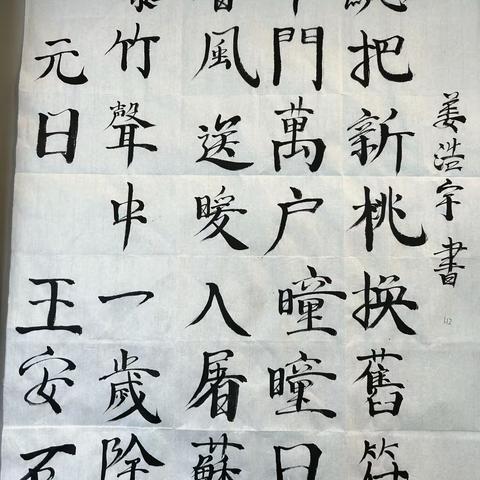 元日 王安石
竹聲中一歲除
風送暖入屠蘇
門萬户曈曈日
把新桃換舊符
姜浩宇書